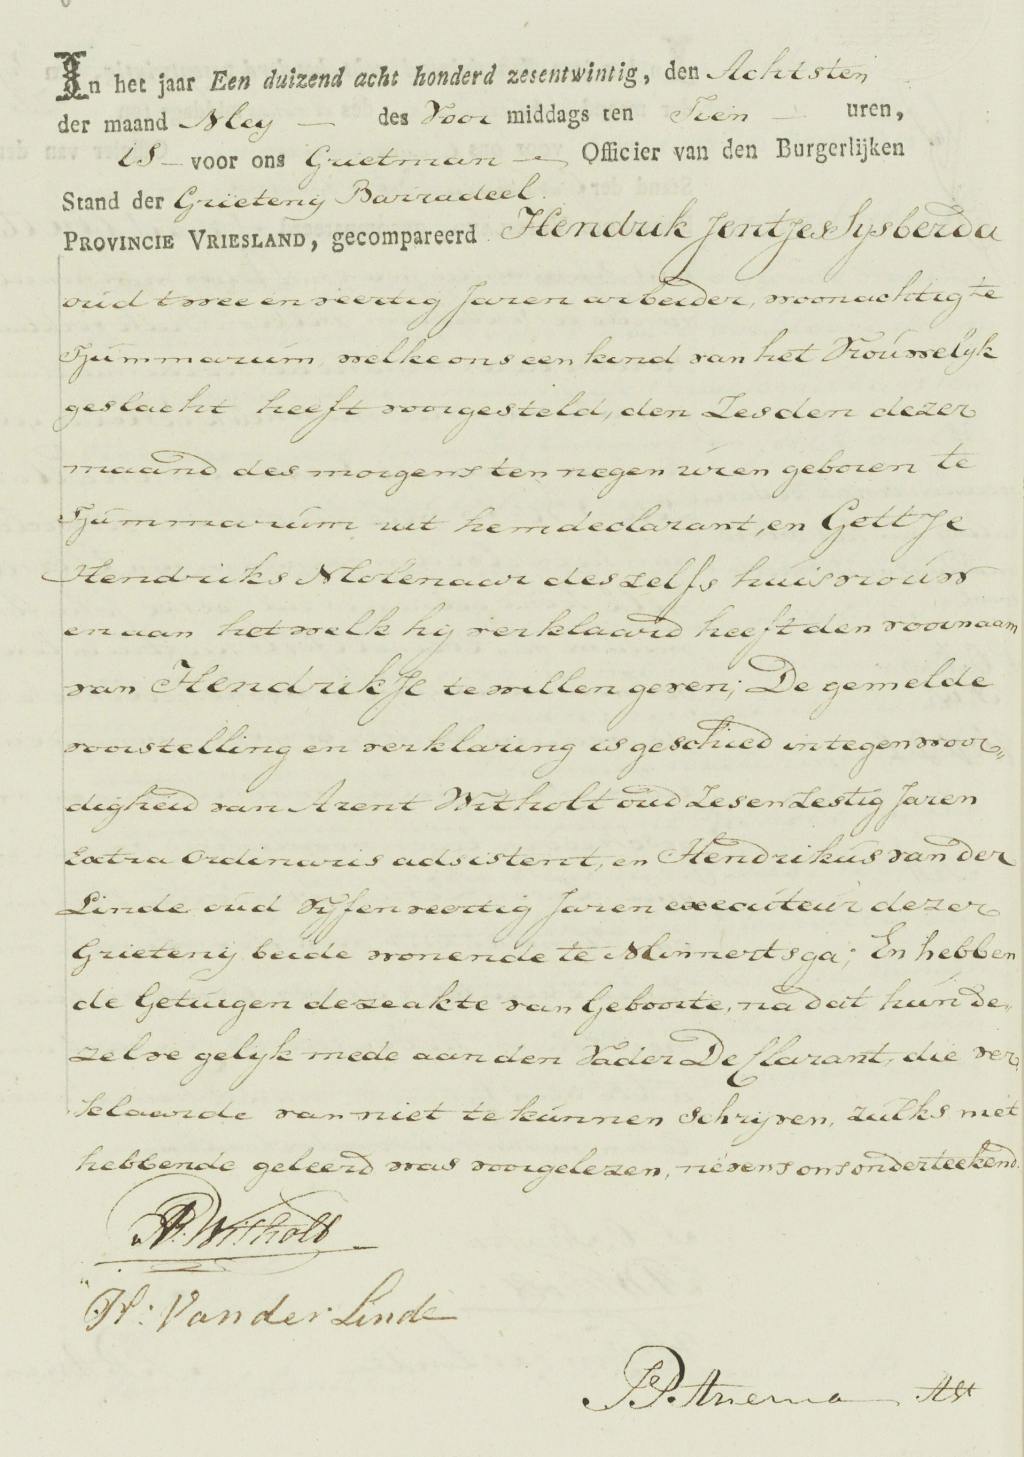 In het jaar Een duizend acht honderd zesentwintig, den Achtsten
der maand Mey — des Voor middags ten Tien — uren,
is — voor ons Grietman — Officier van den Burgerlijken
Stand der Grieteny Barradeel
PROVINCIE VRIESLAND, gecompareerd Hendrik Jentjes Sysberda
oud twee en veertig Jaren arbeider, woonachtig te
Tjummarum, welke ons een kind van het Vrouwelyk
geslacht heeft voorgesteld, den Zesden dezer
maand des morgens ten negen uren geboren te
Tjummarum uit hem declarant, en Gettje
Hendriks Molenaar deszelfs huisvrouw
en aan hetwelk hy verklaard heeft den voornaam
van Hendrikje te willen geven; De gemelde
voorstelling en verklaring is geschied in tegenwoor„
digheid van Arent Witholt oud Zesenzestig Jaren
Extra Ordinaris adsistent, en Hendrikus van der
Linde oud Vyfenveertig Jaren executeur dezer
Grieteny beide wonende te Minnertsga; En hebben
de Getuigen deze akte van Geboorte, na dat hun de„
zelve gelyk mede aan den Vader DeClarant, die ver
klaarde van niet te kunnen schryven, zulks niet
hebbende geleerd was voorgelezen, nevens ons onderteekend.
A: Witholt
H: Van der Linde
Anema Ass